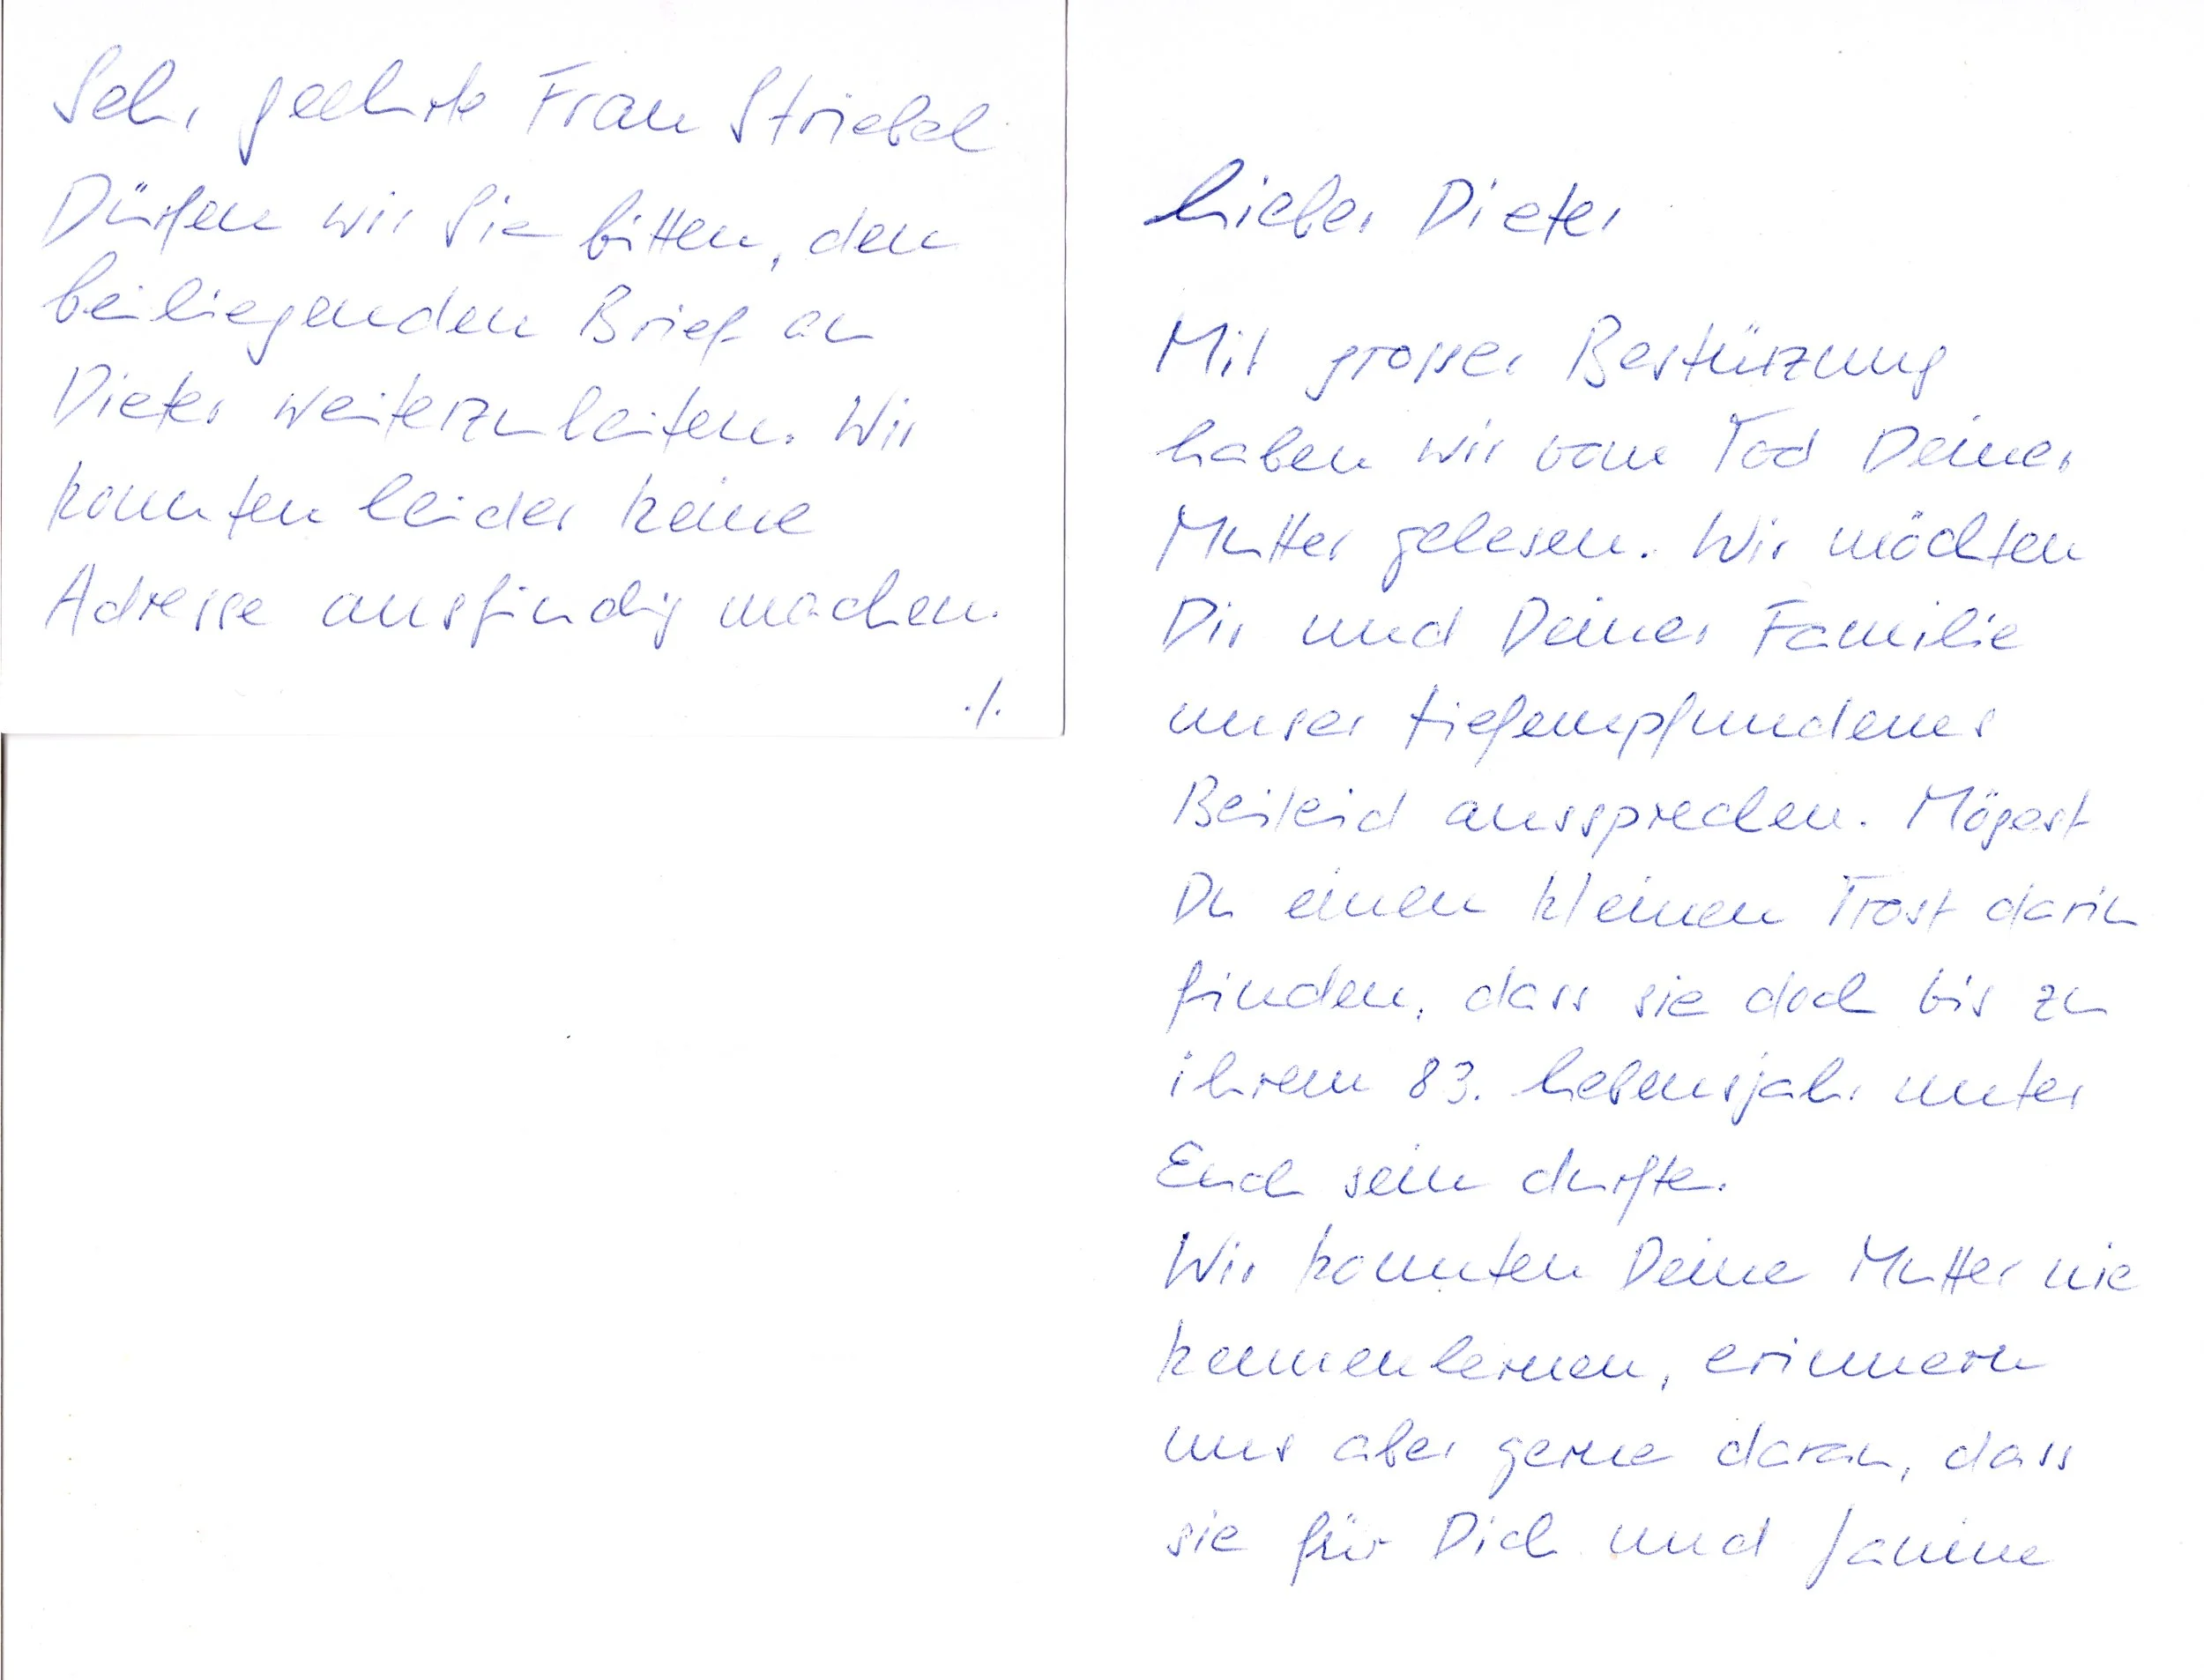 Sehr geehrte Frau Striebel
Dürfen wir Sie bitten, den
beiliegenden Brief an
Dieter weiterzuleiten. Wir
konnten leider keine
Adresse ausfindig machen.
./.
Lieber Dieter
Mit grosser Bestürzung
haben wir vom Tod Deiner
Mutter gelesen. Wir möchten
Dir und Deiner Familie
unser tiefempfundenes
Beileid aussprechen. Mögest
Du einen kleinen Trost darin
finden, dass sie doch bis zu
ihrem 83. Lebensjahr unter
Euch sein durfte.
Wir konnten Deine Mutter nie
kennenlernen, erinnern
uns aber gerne daran, dass
sie für Dich und Janine